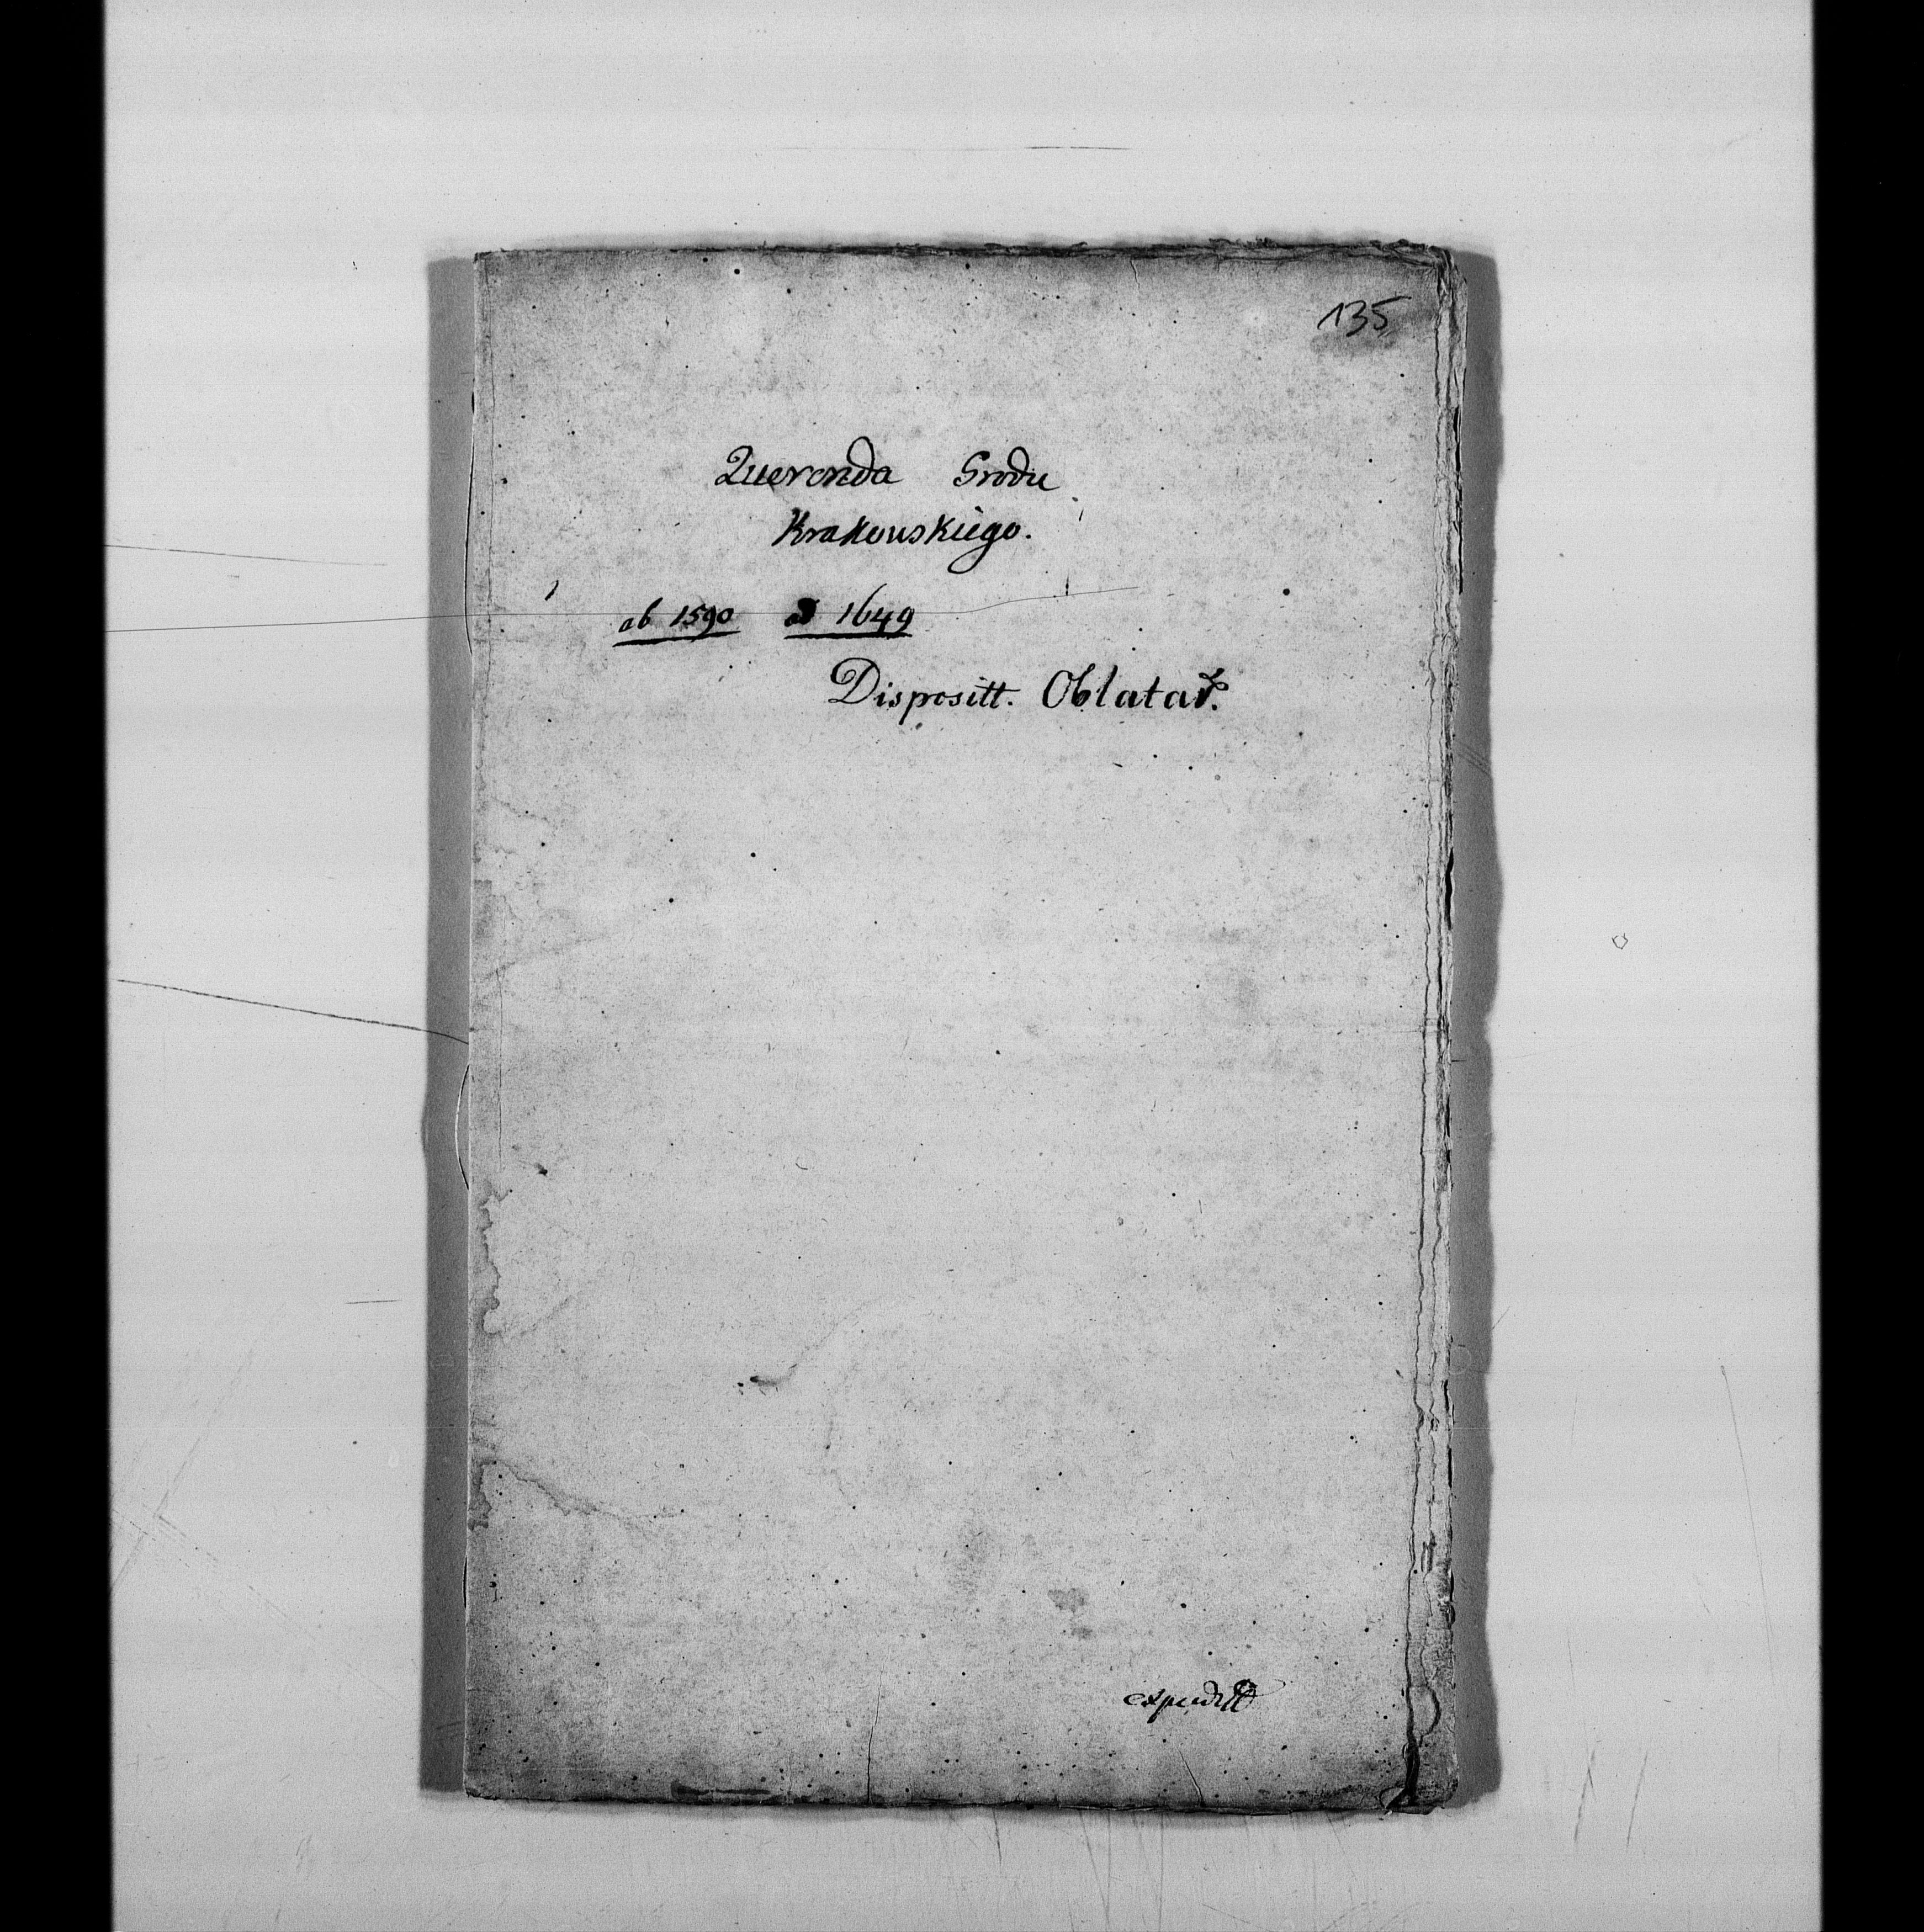 135
Querenda Grodu
Krakowskiego.
ab 1590 ad 1649
Dispositt. Oblatar.
expeditt